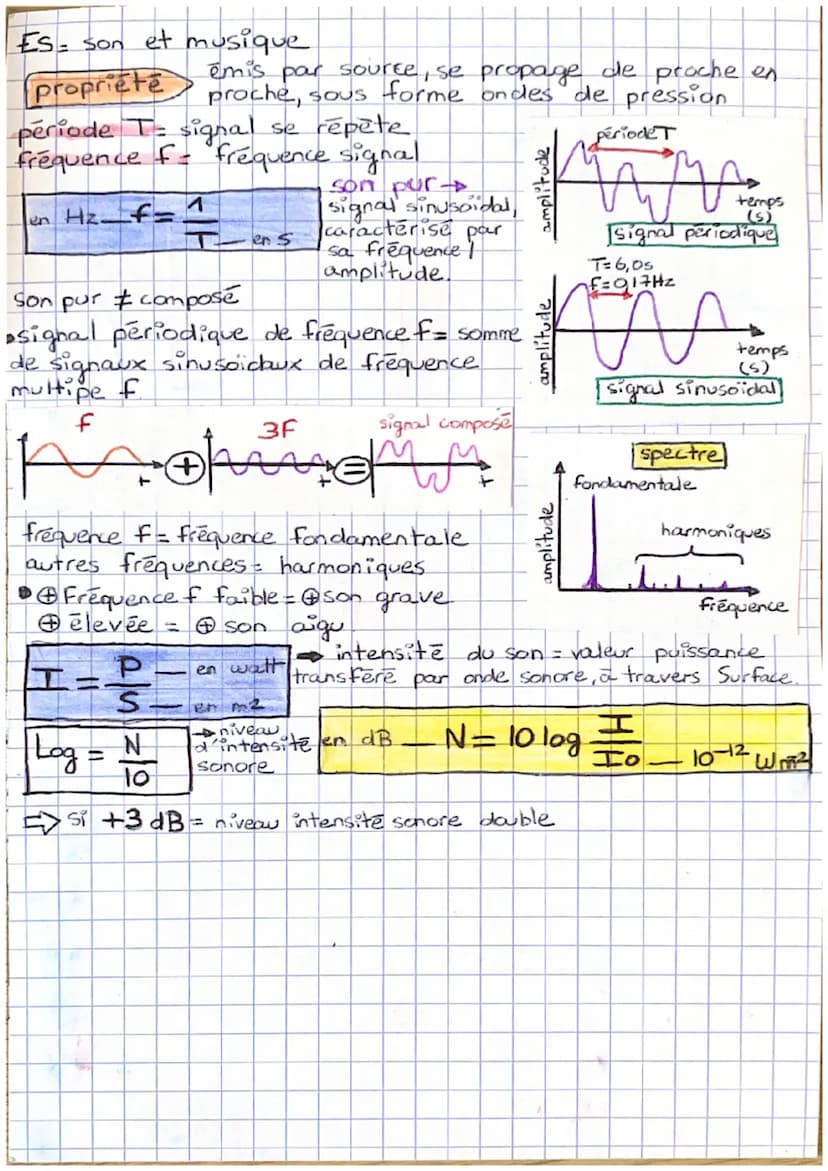 ES = son et musique
propriété
émis par source, se propage de proche en
proche, sous forme ondes de pression
période T = signal se répète
fréquence f = fréquence signal
en Hz — f = 1/T — en s
son pur →
signal sinusoïdal,
caractérisé par
sa fréquence /
amplitude.
période T
amplitude
temps
(s)
signal périodique
T=6,0s
f=0,17Hz
amplitude
temps
(s)
signal sinusoïdal
son pur ≠ composé
•signal périodique de fréquence f = somme
de signaux sinusoïdaux de fréquence
multipe f
f
3F
signal composé
t + t = t
spectre
fondamentale
harmoniques
amplitude
fréquence
fréquence f = fréquence fondamentale
autres fréquences = harmoniques
• ⊕ Fréquence f faible = ⊕ son grave
⊕ élevée = ⊕ son aigu
I = P/S
en watt
en m2
➡ intensité du son = valeur puissance
transféré par onde sonore, à travers Surface.
Log = N/10
→ niveau
d'intensité
sonore
en dB — N = 10 log I/Io — 10⁻¹² W m⁻²
⇨ si +3 dB = niveau intensité sonore double